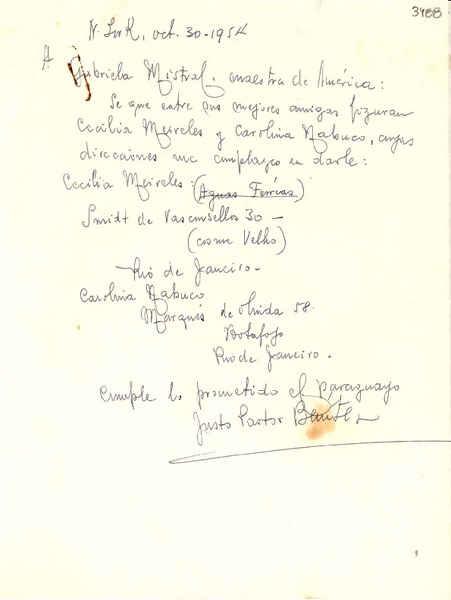 3488
N. York, oct. 30-1954
A
Gabriela Mistral, maestra de América:
Se que entre sus mejores amigas figuran
Cecilia Meireles y Carolina Nabuco, cuyas
direcciones me complazco en darle:
Cecilia Meireles: (Aguas Ferrias)
Smidt de Vasconsellos 30 -
(cosme Velho)
Rio de Janeiro -
Carolina Nabuco
Marqués de Olinda 58.
Botafogo
Rio de Janeiro.
Cumple lo prometido el paraguayo
Justo Pastor Benítez